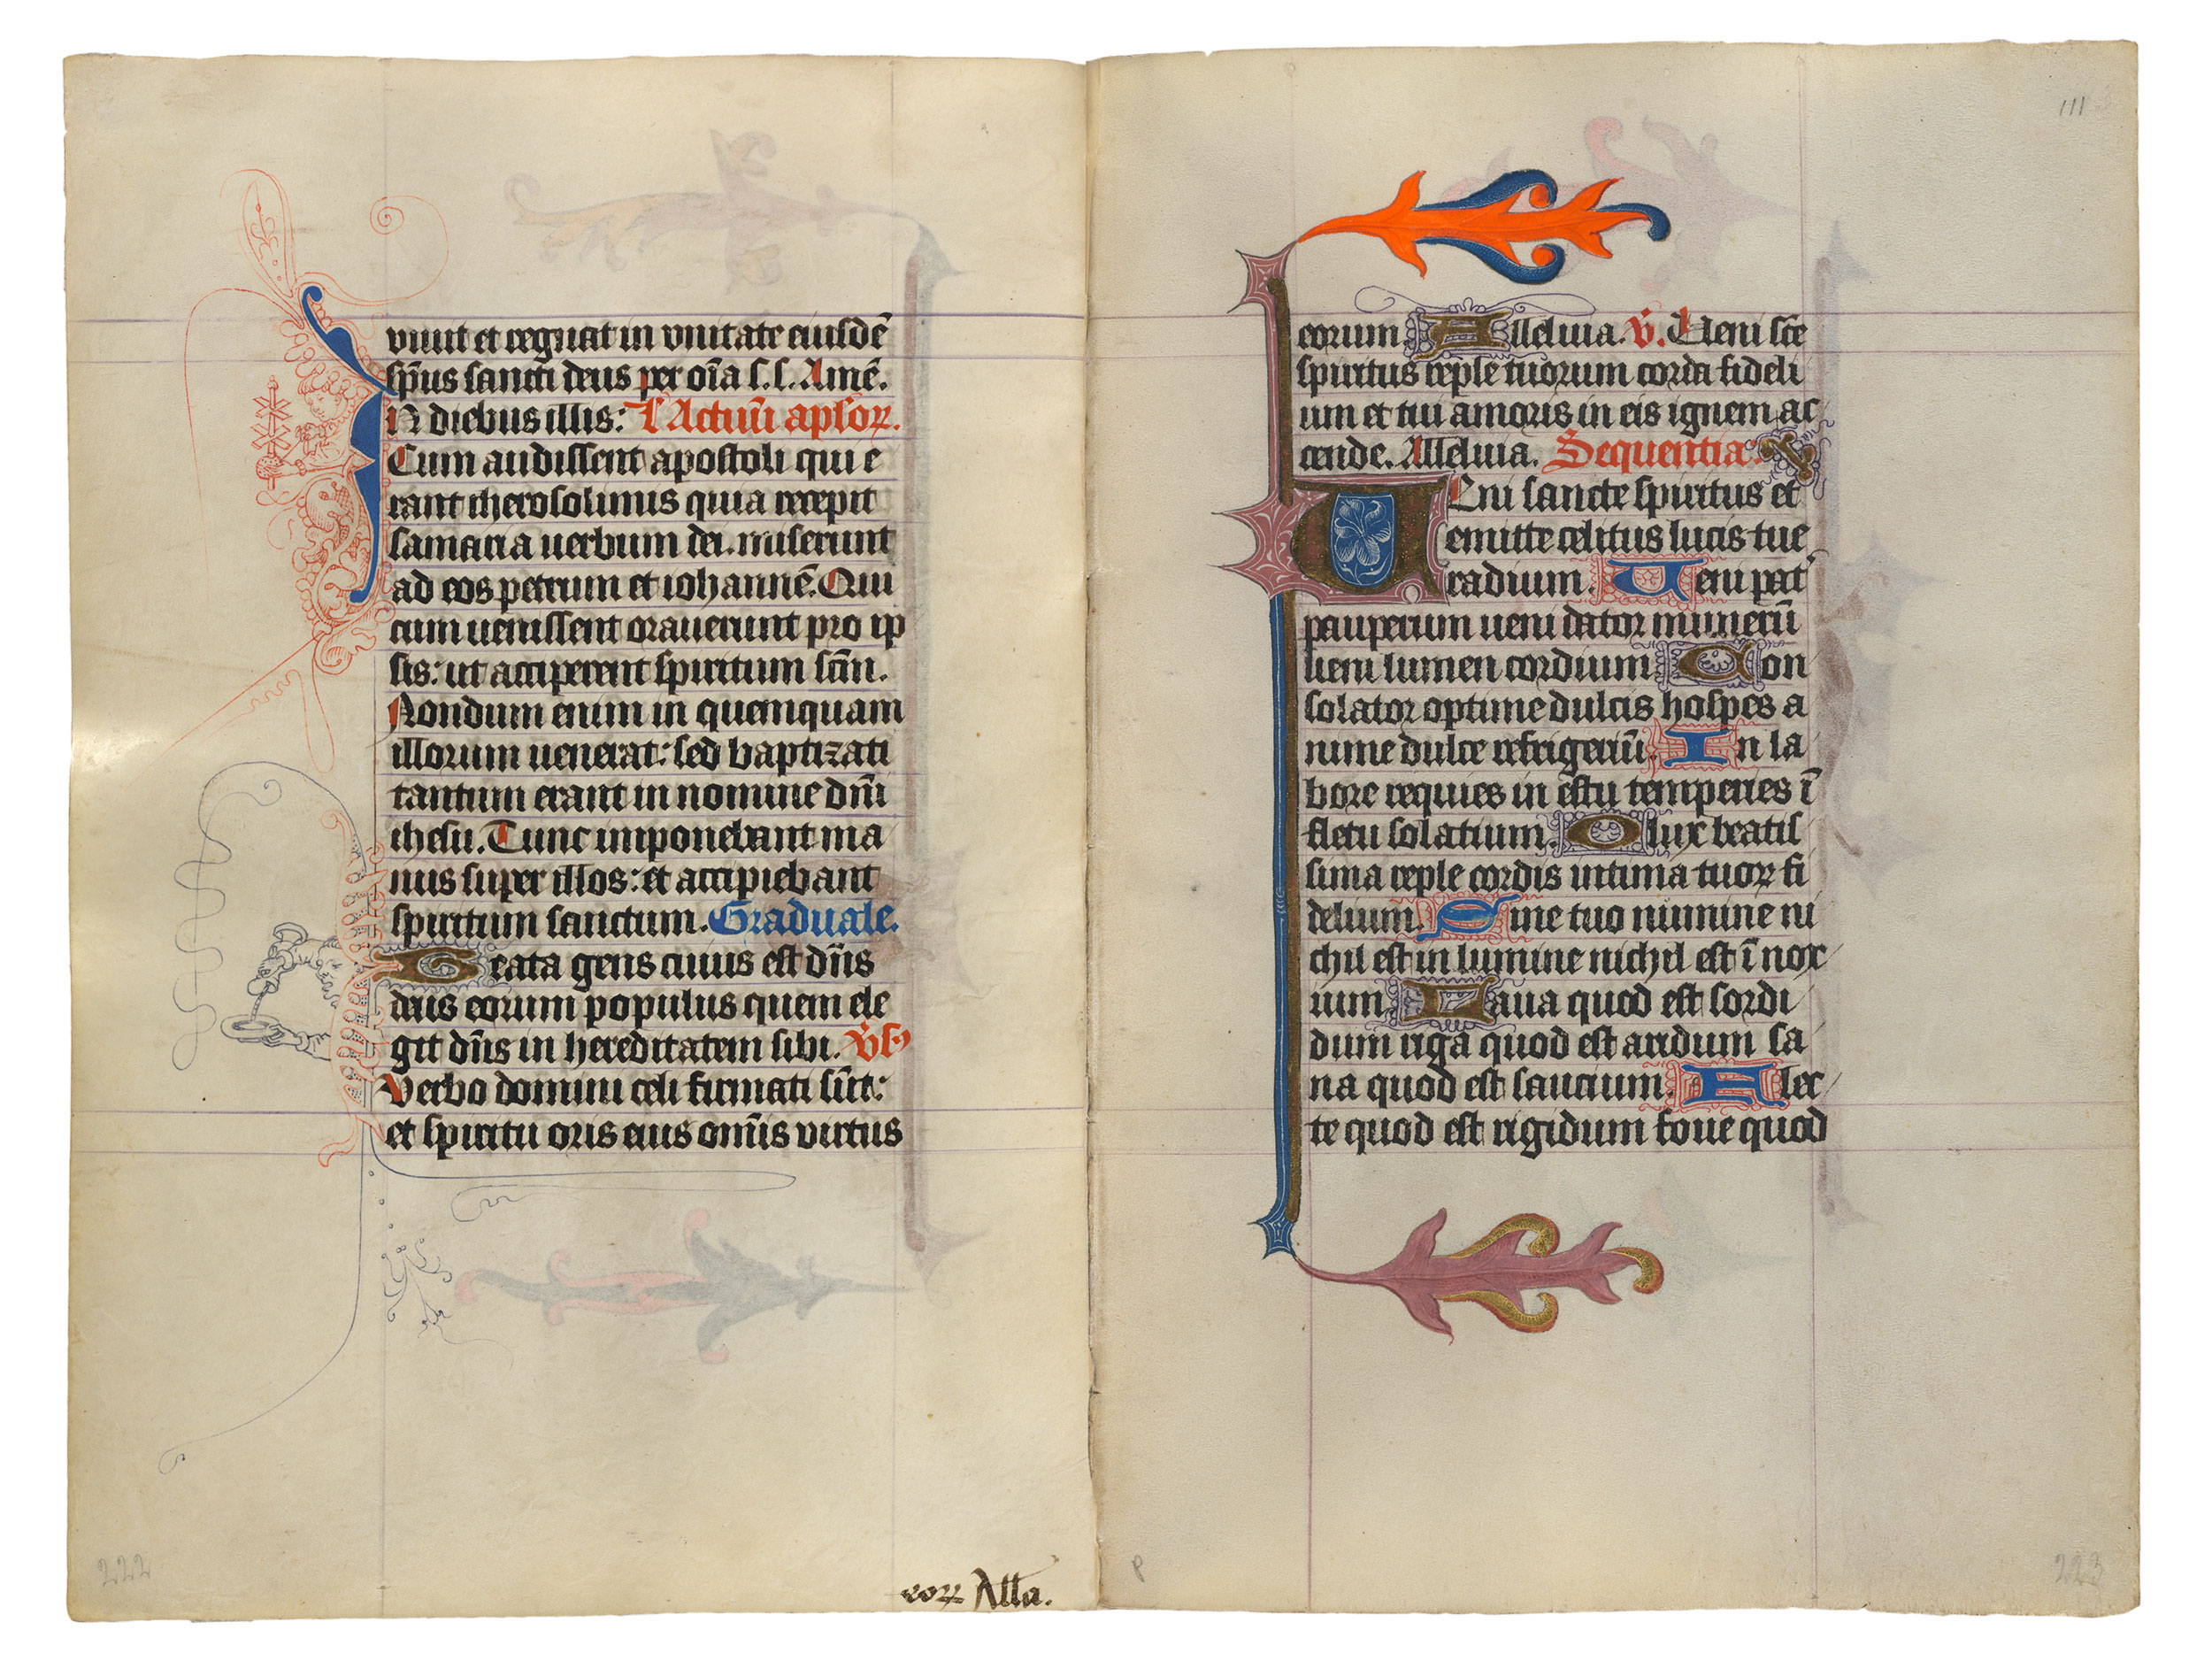 viuit et regnat in vnitate eiusdē
sp̄us sancti deus per oīa s. s. Amē.
IN diebus illis: L' Actuū aplōꝝ.
Cum audissent apostoli qui e
rant iherosolimis quia recepit
samaria uerbum dei. miserunt
ad eos petrum et iohannē. Qui
cum uenissent orauerunt pro ip
sis: ut acciperent spiritum sc̄m.
Nondum enim in quemquam
illorum uenerat: sed baptizati
tantum erant in nomine dn̄i
ihesu. Tunc imponebant ma
nus super illos: et accipiebant
spiritum sanctum. Graduale.
Beata gens cuius est dn̄s
deus eorum populus quem ele
git dn̄s in hereditatem sibi. V̄s
Verbo domini celi firmati sūt:
et spiritu oris eius om̄is virtus
eoꝝ Alla.
222
111
eorum. Alleluia. V̄. Ueni sc̄e
spiritus reple tuorum corda fideli
um et tui amoris in eis ignem ac
cende. Alleluia. Sequentia.
UEni sancte spiritus et
emitte celitus lucis tue
radium. Ueni pat̉
pauperum ueni dator munerū
ueni lumen cordium. Con
solator optime dulcis hospes a
nime dulce refrigeriū. In la
bore requies in estu temperies ī
fletu solatium. O lux beatis
sima reple cordis intima tuoꝝ fi
delium. Sine tuo numine ni
chil est in lumine nichil est ī nox
ium. Laua quod est sordi
dum riga quod est aridum sa
na quod est saucium. Flec
te quod est rigidum foue quod
p
223